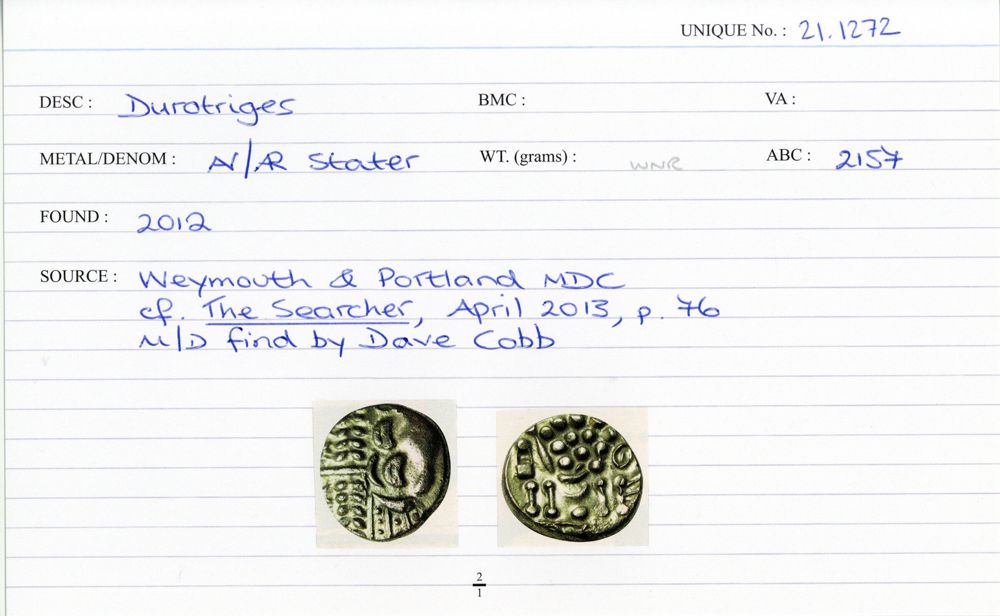 UNIQUE No. : 21.1272
DESC : Durotriges BMC : VA :
METAL/DENOM : AV/AR Stater WT. (grams) : WNR ABC : 2157
FOUND : 2012
SOURCE : Weymouth & Portland MDC
cf. The Searcher, April 2013, p. 76
M/D find by Dave Cobb
2
1